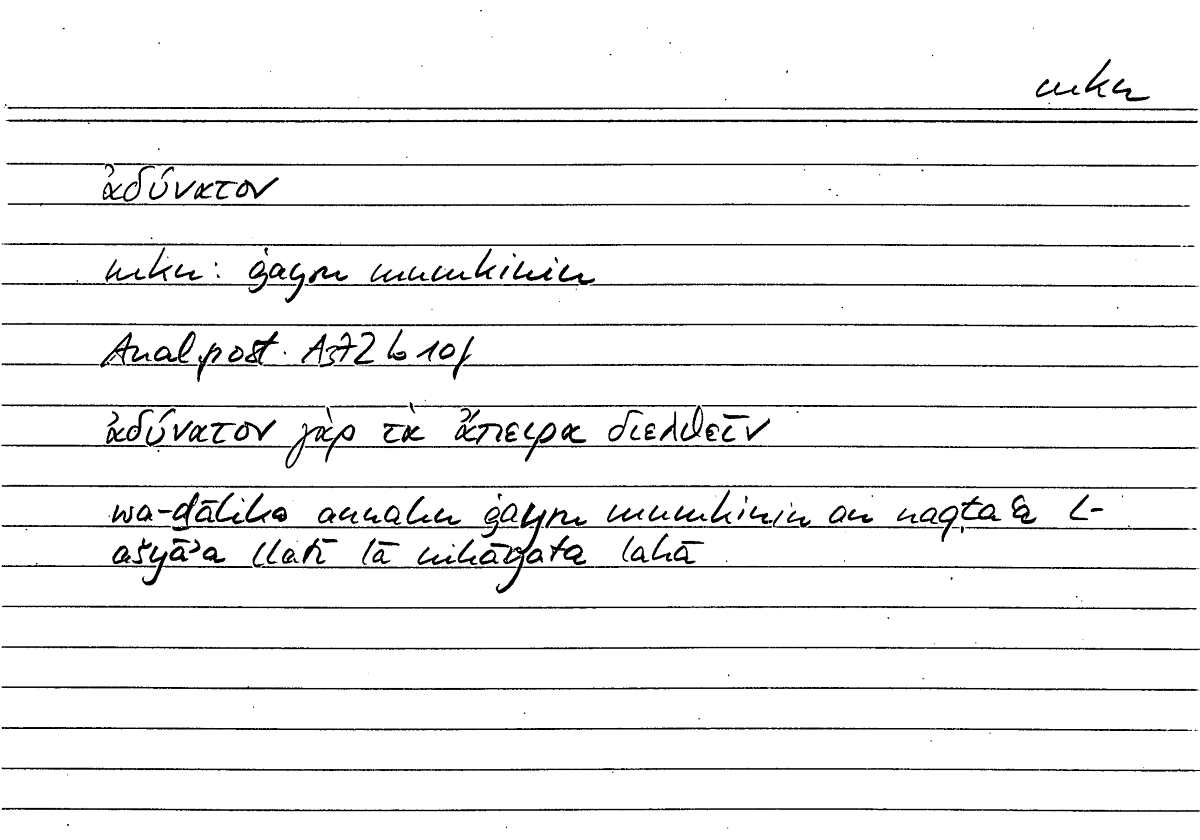 mkn
ἀδύνατον
mkn: ġayru mumkinin
Anal. post. A3 72 b 10f
ἀδύνατον γὰρ τὰ ἄπειρα διελθεῖν
wa-ḏālika annahu ġayru mumkinin an naqṭaʿa l-
ašyāʾa llatī lā nihāyata lahā